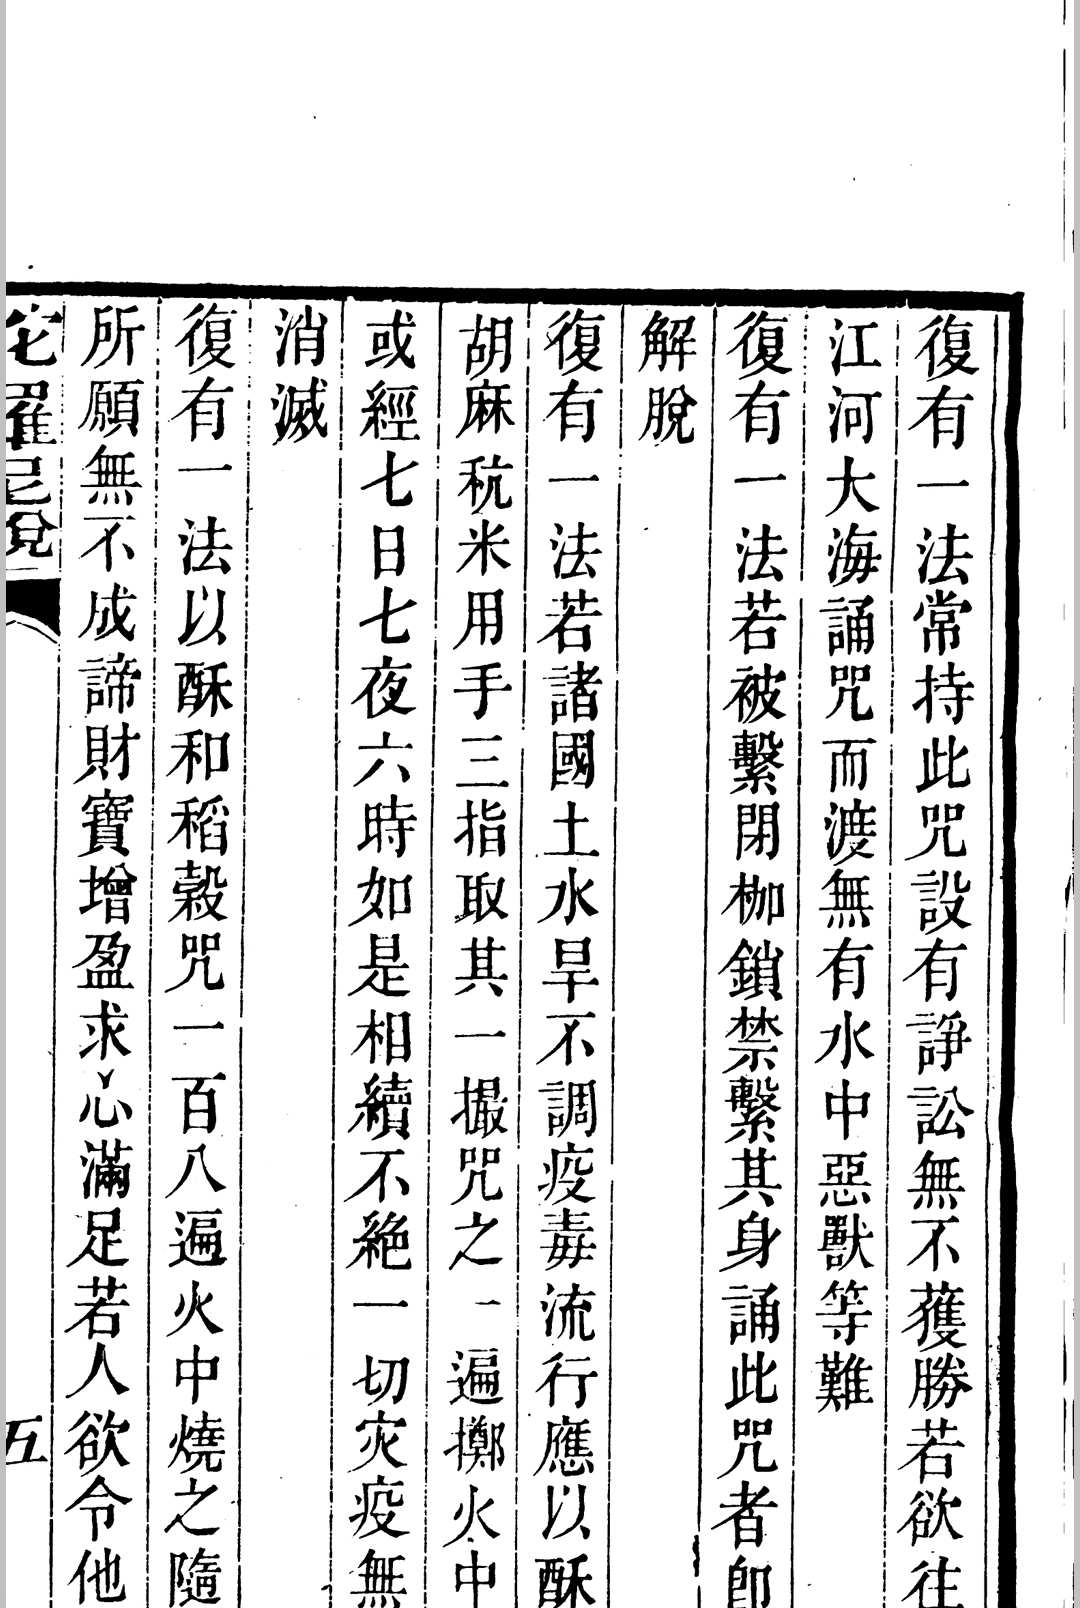 復有一法常持此咒設有諍訟無不獲勝若欲往
江河大海誦咒而渡無有水中惡獸等難
復有一法若被繫閉枷鎖禁繫其身誦此咒者卽
解脫
復有一法若諸國土水旱不調疫毒流行應以酥
胡麻秔米用手三指取其一撮咒之一遍擲火中
或經七日七夜六時如是相續不絶一切灾疫無
消滅
復有一法以酥和稻穀咒一百八遍火中燒之隨
所願無不成諦財寶增盈求心滿足若人欲令他
陀羅尼說 五